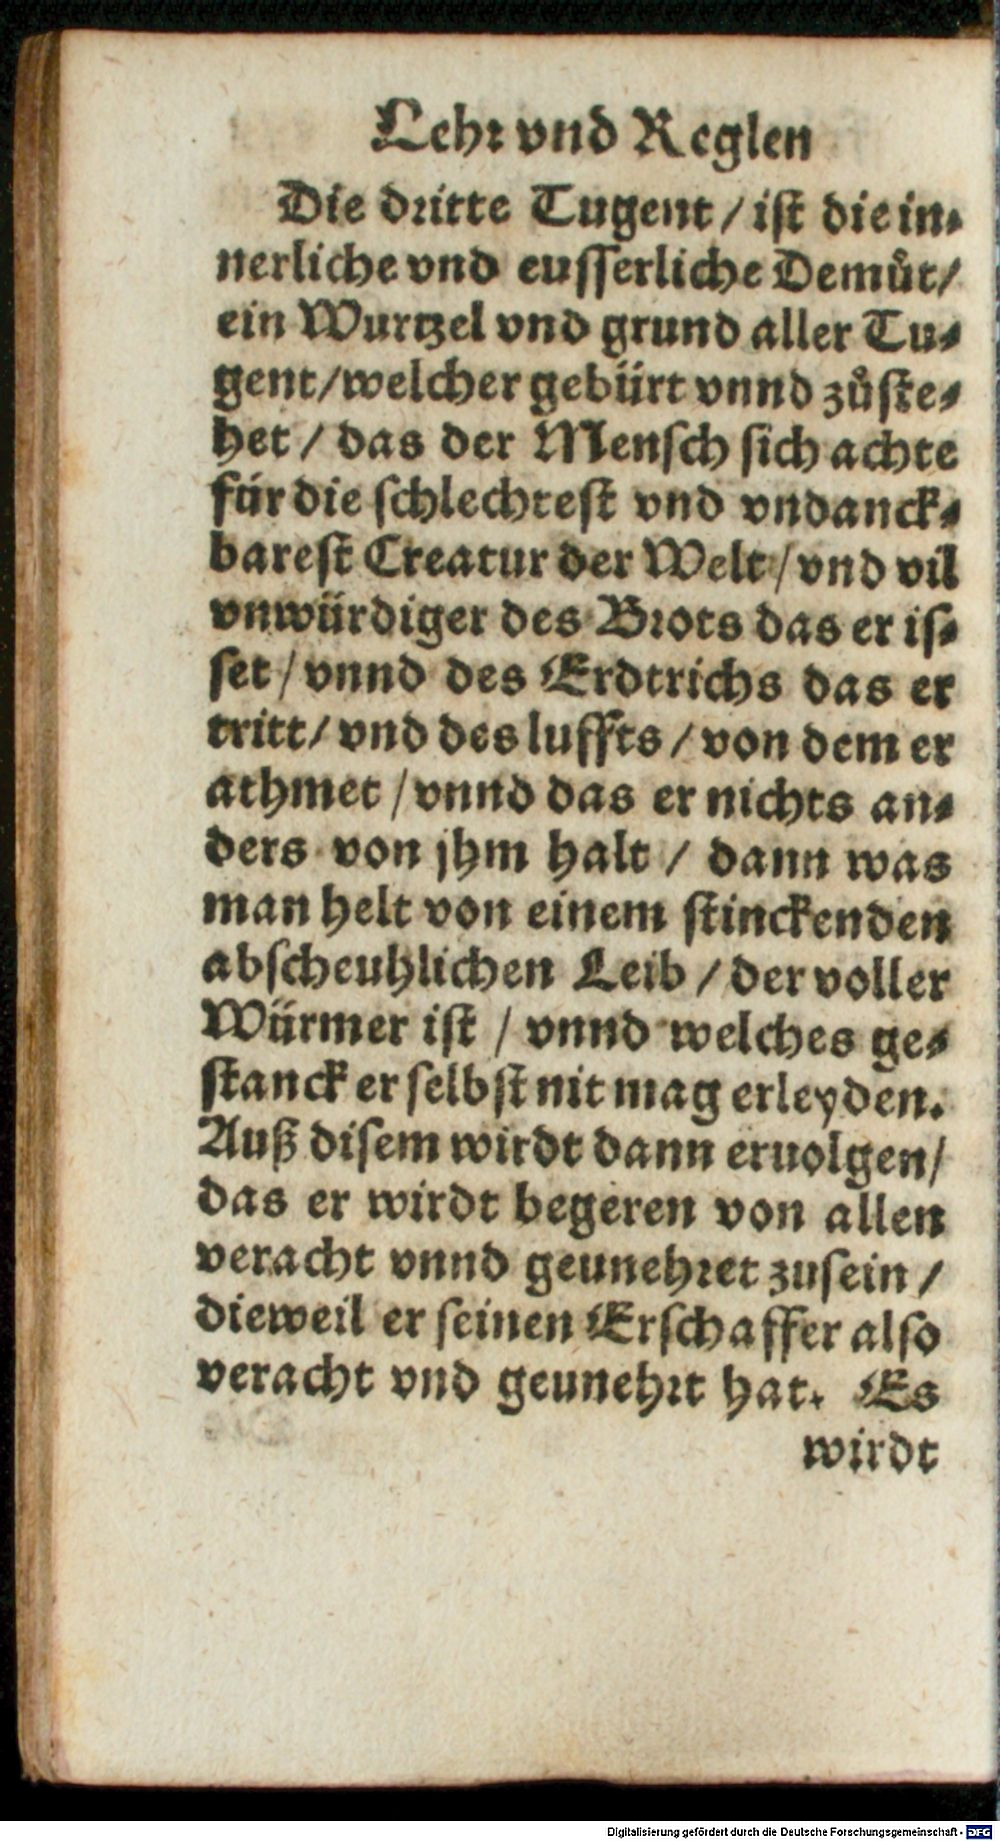 Lehr vnd Reglen
Die dritte Tugent / ist die in⸗
nerliche vnd eusserliche Demůt/
ein Wurtzel vnd grund aller Tu⸗
gent/welcher gebürt vnnd zůste⸗
het / das der Mensch sich achte
für die schlechtest vnd vndanck⸗
barest Creatur der Welt / vnd vil
vnwürdiger des Brots das er is⸗
set / vnnd des Erdtrichs das er
tritt/ vnd des luffts / von dem er
athmet / vnnd das er nichts an⸗
ders von jhm halt / dann was
man helt von einem stinckenden
abscheuhlichen Leib / der voller
Würmer ist / vnnd welches ge⸗
stanck er selbst nit mag erleyden.
Auß disem wirdt dann eruolgen/
das er wirdt begeren von allen
veracht vnnd geunehret zusein /
dieweil er seinen Erschaffer also
veracht vnd geunehrt hat. Es
wirdt
Digitalisierung gefördert durch die Deutsche Forschungsgemeinschaft - DFG